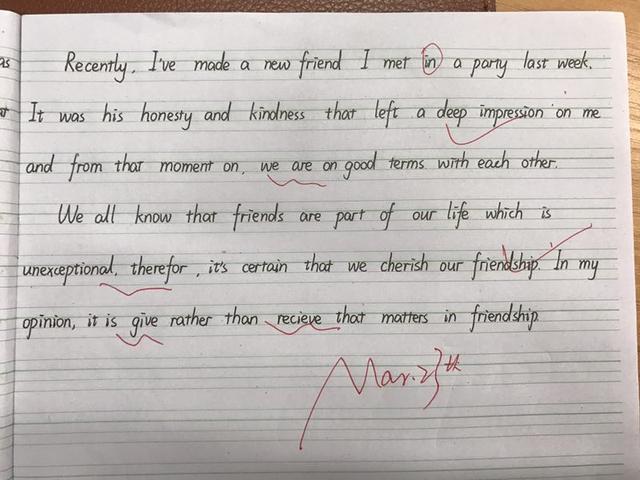 as
Recently, I've made a new friend I met in a party last week.
It was his honesty and kindness that left a deep impression on me
and from that moment on, we are on good terms with each other.
We all know that friends are part of our life which is
unexceptional, therefor, it's certain that we cherish our friendship. In my
opinion, it is give rather than recieve that matters in friendship
Mar. 23th